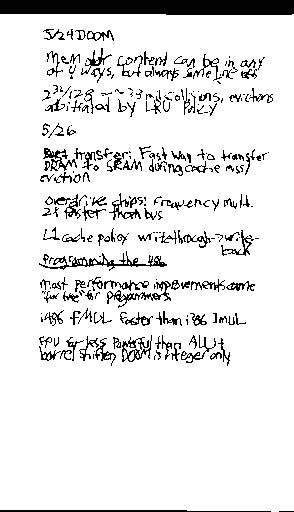 5/24 DOOM
mem addr content can be in any
of 4 ways, but always same line off
2^32/128 = ~33 mil collisions, evictions
arbitrated by LRU Policy
5/26
Burst transfer: Fast way to transfer
DRAM to SRAM during cache miss/
eviction
overdrive chips: frequency mult.
2x faster than bus
L1 cache policy writethrough->write-
back
Programming the 486
most performance improvements came
"for free" for programmers
i486 FMUL faster than i386 IMUL
FPU far less powerful than ALU +
barrel shifter, DOOM is integer only